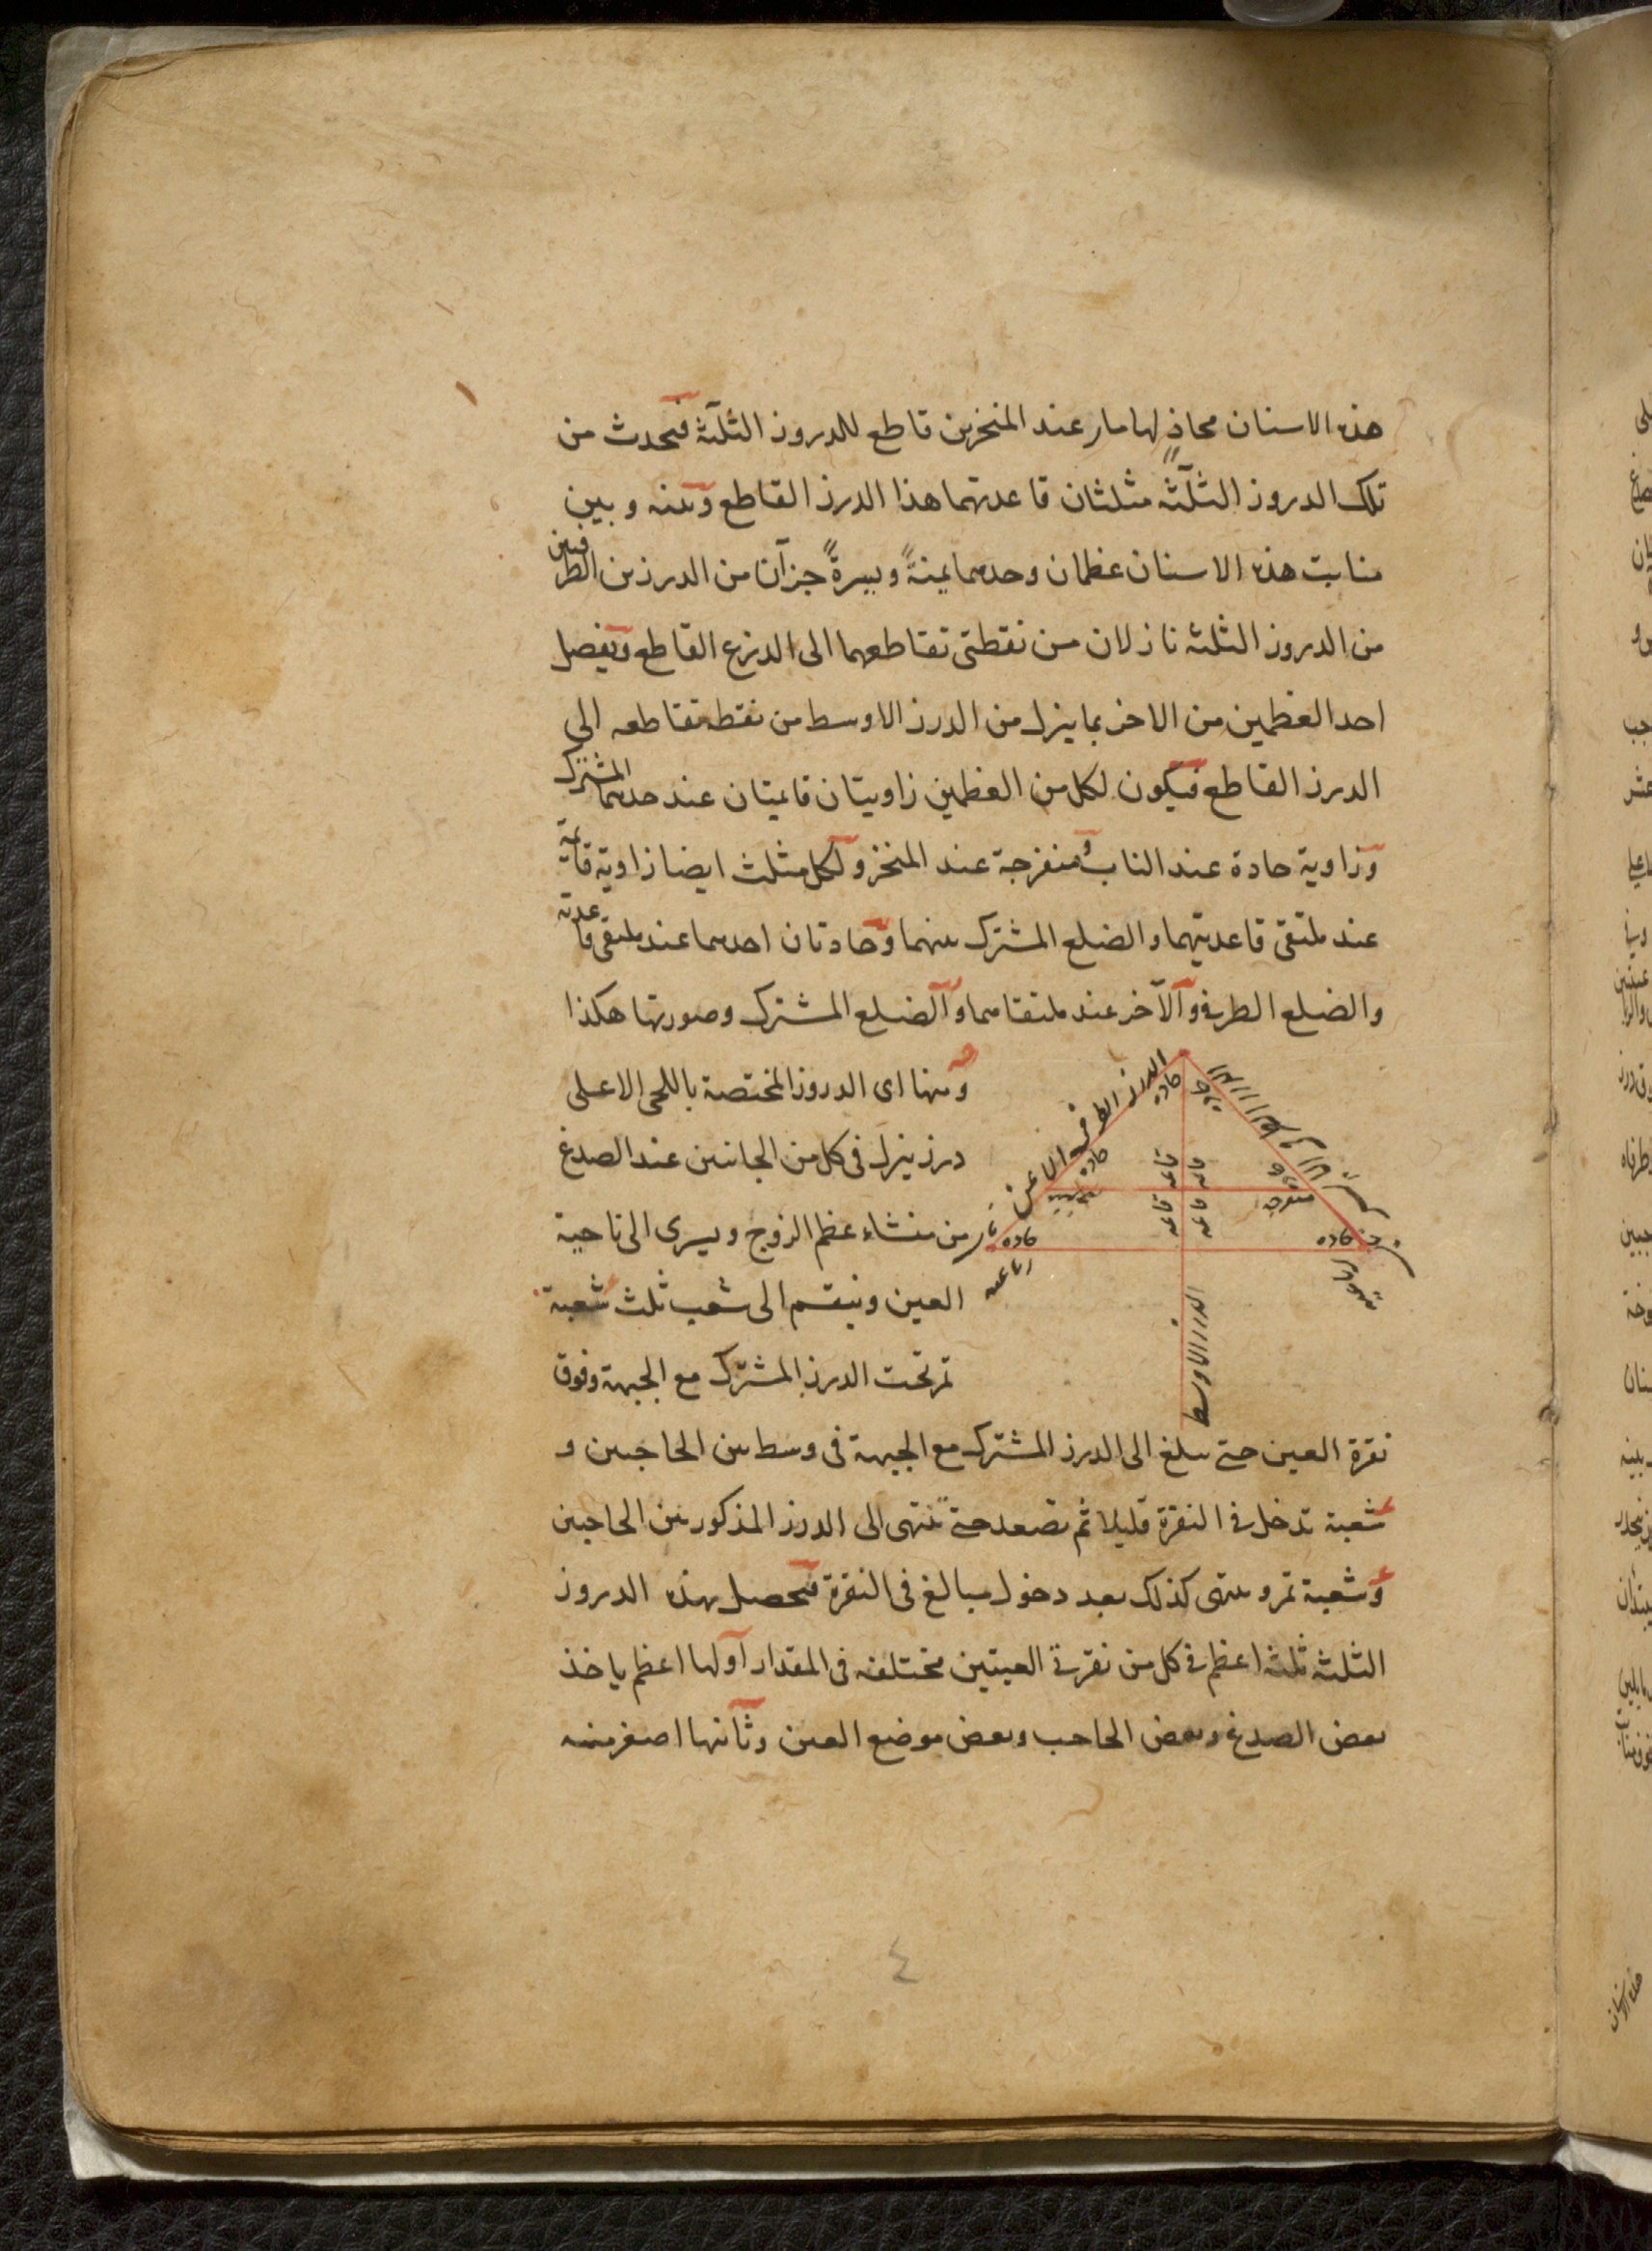 هذه الاسنان محاذٍ لها مار عند المنخرين قاطع للدروز الثلثة فتحدث من
تلك الدروز الثلثة مثلثان قاعدتهما هذا الدرز القاطع وبينه وبين
منابت هذه الاسنان عظمان وحدهما يمنةً ويسرةً جزآن من الدرزين الطرفين
من الدروز الثلثة نازلان من نقطتى تقاطعهما الى الدرزع القاطع ويفصل
احد العظمين من الاخر بما ينزل من الدرز الاوسط من نقطة تقاطعه الى
الدرز القاطع فيكون لكل من العظمين زاويتان قايمتان عند حدهما المشترك
وزاوية حادة عند الناب ومنفرجة عند المنخر ولكل مثلث ايضا زاوية قايمة
عند ملتقى قاعدتيهما والضلع المشترك بينهما وحادتان احدهما عند ملتقى قاعدته
والضلع الطرفى والآخر عند ملتقاهما والضلع المشترك وصورتها هكذا
ومنها اى الدروز المختصة باللحى الاعلى
درز ينزل فى كل من الجانبين عند الصدغ
من منشاء عظم الزوج ويسرى الى ناحية
العين وينقسم الى شعب ثلث شعبة
تمر تحت الدرز المشترك مع الجبهة وفوق
نقرة العين حتى يبلغ الى الدرز المشترك مع الجبهة فى وسط بين الحاجبين و
شعبة تدخل فى النقرة قليلا ثم تصعد حتى تنتهى الى الدرز المذكور بين الحاجبين
وشعبة تمر وتنتهى كذلك بعد دخول مبالغ فى النقرة فتحصل بهذه الدروز
الثلثة ثلثة اعظم فى كل من نقرتى العينين مختلفه فى المقدار اولها اعظم ياخذ
بعض الصدغ وبعض الحاجب وبعض موضع العين وثانيها اصغر منه
الدرز الطرفى
حاده
حاده
حاده
حاده
قايمه
قايمه
قايمه
قايمه
منفرجه
حاده
حاده
رباعيه
الدرز الاوسط
٤